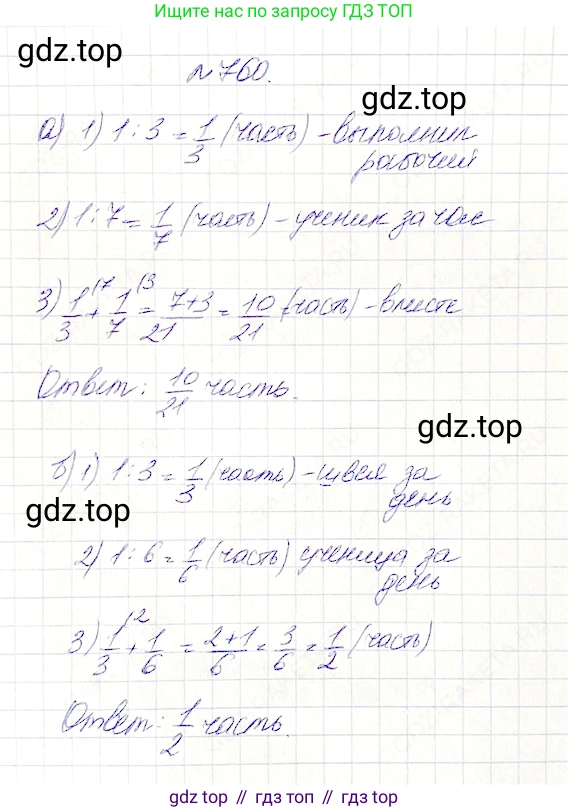 Ищите нас по запросу ГДЗ ТОП
gdz.top
№760.
gdz.top
а) 1) 1 : 3 = 1/3 (часть) - выполнил
рабочий
2) 1 : 7 = 1/7 (часть) - ученик за час
3) 1/3 (7 + 1/7 (3 = 7+3/21 = 10/21 (часть) - вместе
Ответ: 10/21 часть.
gdz.top
б) 1) 1 : 3 = 1/3 (часть) - швея за
день
gdz.top
2) 1 : 6 = 1/6 (часть) ученица за
день
3) 1/3 (2 + 1/6 = 2+1/6 = 3/6 = 1/2 (часть)
Ответ: 1/2 часть.
gdz.top // гдз.топ // gdz.top // гдз.топ